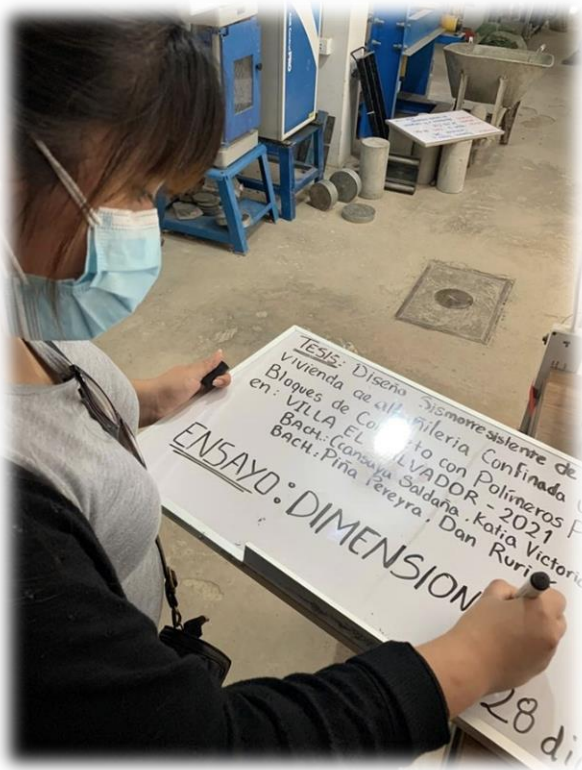 TESIS: Diseño Sismorresistente de
vivienda de albañileria Confinada
Bloques de Concreto con Polímeros
en: VILLA EL SALVADOR - 2021
BACH.: Ccansaya Saldaña, Katia Victoria
BACH.: Piña Pereyra, Dan Ruri
ENSAYO: DIMENSION
28 di